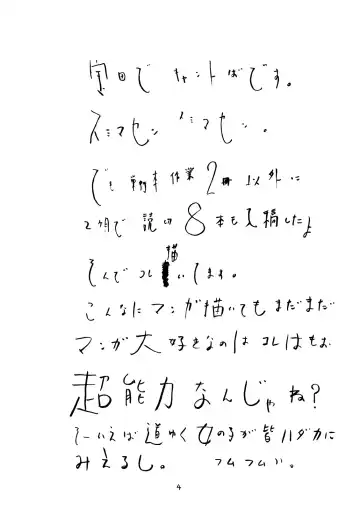 全目で キャントばです。
スミマセン スミマセン。
でも 単行本作業2冊以外に
2ヶ月で読切8本も入稿したよ
そんでコレ描いてます。
こんなにマンガ描いてもまだまだ
マンガ大好きなのは コレはもお
超能力なんじゃね?
そーいえば道ゆく女の子が皆ハダカに
みえるし。 フムフム、、。
4